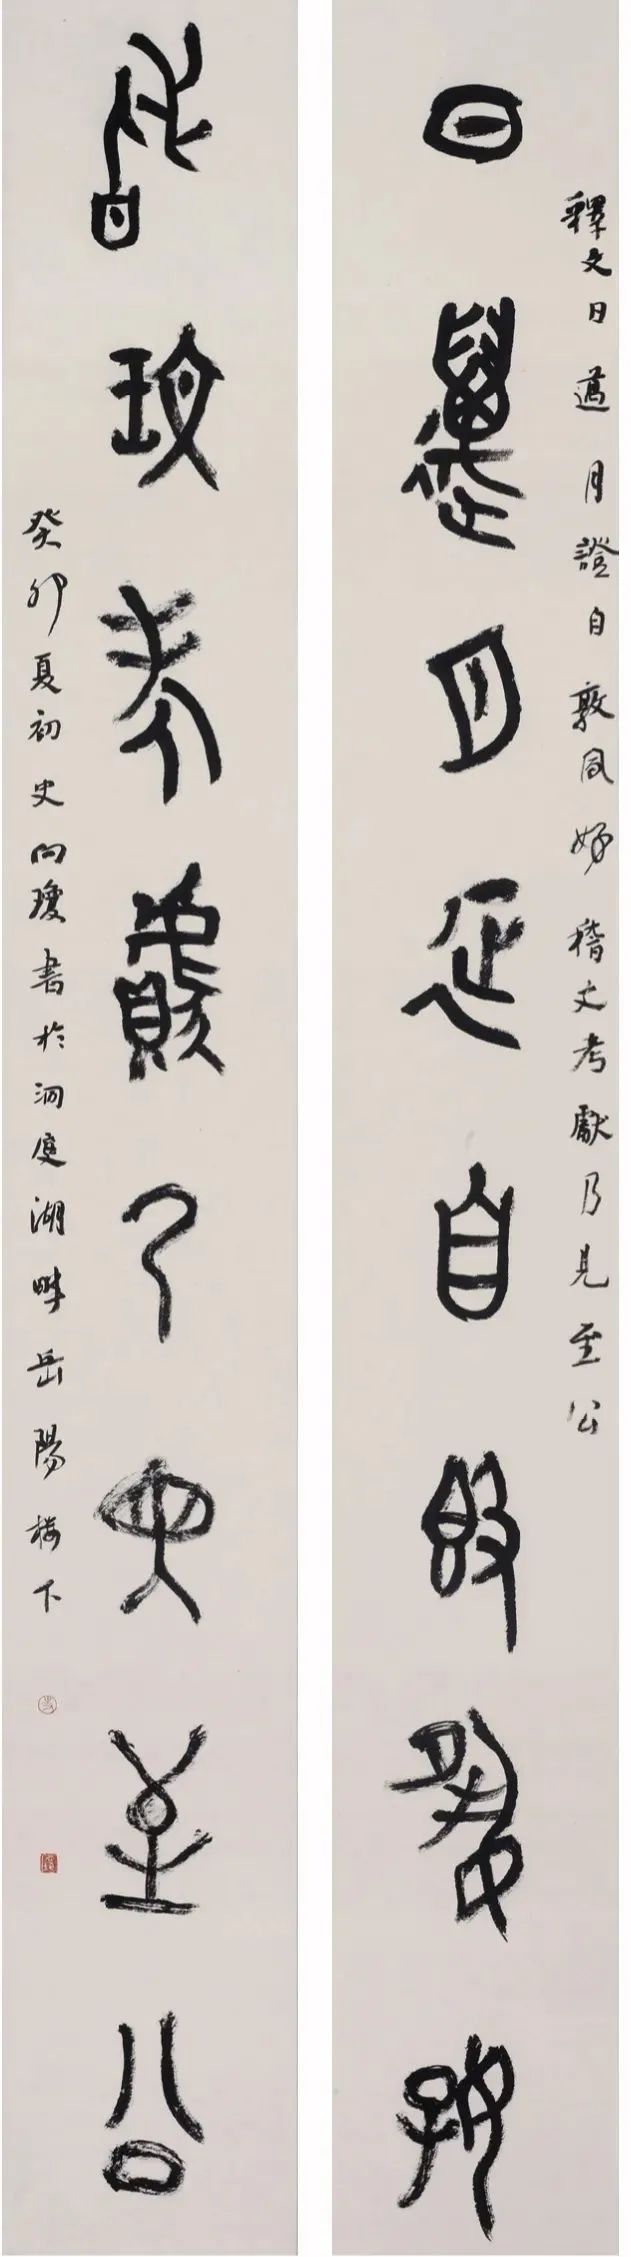 釋文日邁月證自敦夙好稽文考獻乃見至公
日邁月征自敦夙好
稽玟考獻乃見至公
癸卯夏初史向瓊書於洞庭湖畔岳陽樓下